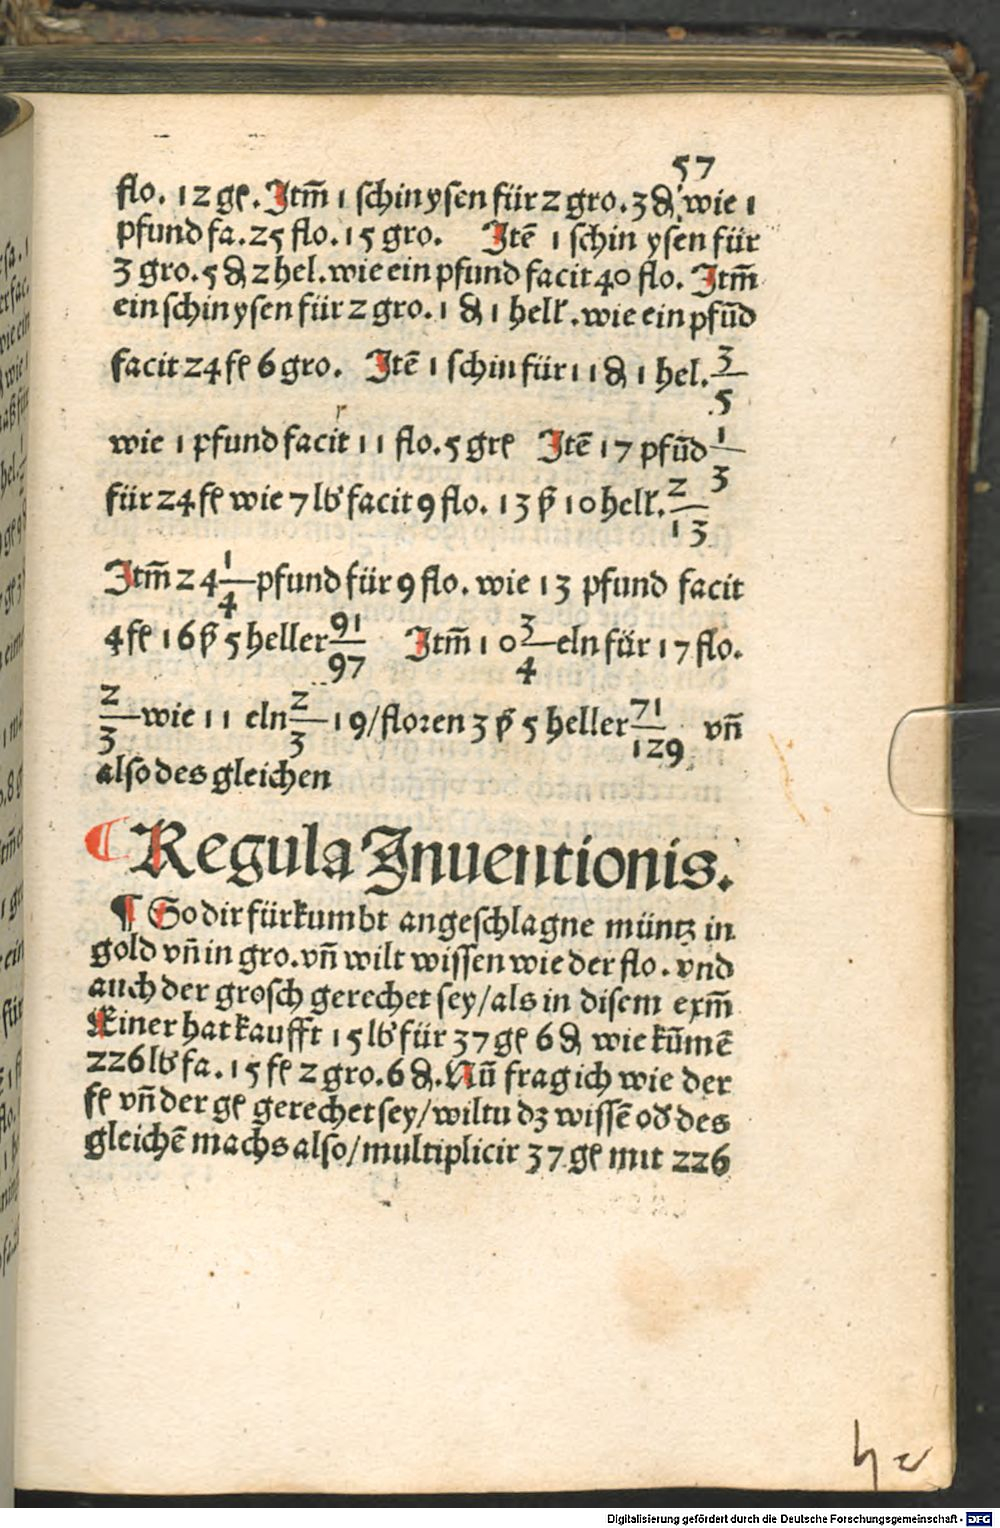 57
flo. 12 gꝭ. Itm̄ 1 schin ysen für 2 gro. 3 ₰ wie 1
pfund fa. 25 flo. 15 gro. Itē 1 schin ysen für
3 gro. 5 ₰ 2 hel. wie ein pfund facit 40 flo. Itm̄
ein schin ysen für 2 gro. 1 ₰ 1 hell. wie ein pfūd
facit 24 fꝭ 6 gro. Itē 1 schin für 11 ₰ 1 hel. 3/5
wie 1 pfund facit 11 flo. 5 grꝭ Itē 17 pfūd 1/3
für 24 fꝭ wie 7 lb facit 9 flo. 13 ꝓ 10 hell. 2/13
Itm̄ 24 1/4 pfund für 9 flo. wie 13 pfund facit
4 fꝭ 16 ꝓ 5 heller 91/97 Itm̄ 10 3/4 eln für 17 flo.
2/3 wie 11 eln 2/3 19/floren 3 ꝓ 5 heller 71/129 vñ
also des gleichen
Regula Inuentionis.
¶ So dir fürkumbt angeschlagne müntz in
gold vñ in gro. vñ wilt wissen wie der flo. vnd
auch der grosch gerechet sey/als in disem exm̄
Einer hat kaufft 15 lb für 37 gꝭ 6 ₰ wie kūmē
226 lb fa. 15 fꝭ 2 gro. 6 ₰. Nū frag ich wie der
fꝭ vñ der gꝭ gerechet sey/wiltu dz wissē od des
gleichē machs also/multiplicir 37 gꝭ mit 226
Digitalisierung gefördert durch die Deutsche Forschungsgemeinschaft - DFG